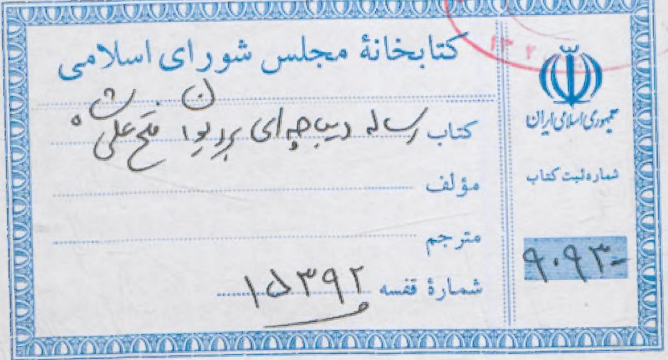 کتابخانهٔ مجلس شورای اسلامی
کتاب رساله دیباچه‌ای بر دیوان فتح علی شاه
مؤلف
مترجم
شمارهٔ قفسه ۱۵۳۹۲
جمهوری اسلامی ایران
شماره ثبت کتاب
۹۰۹۳۰